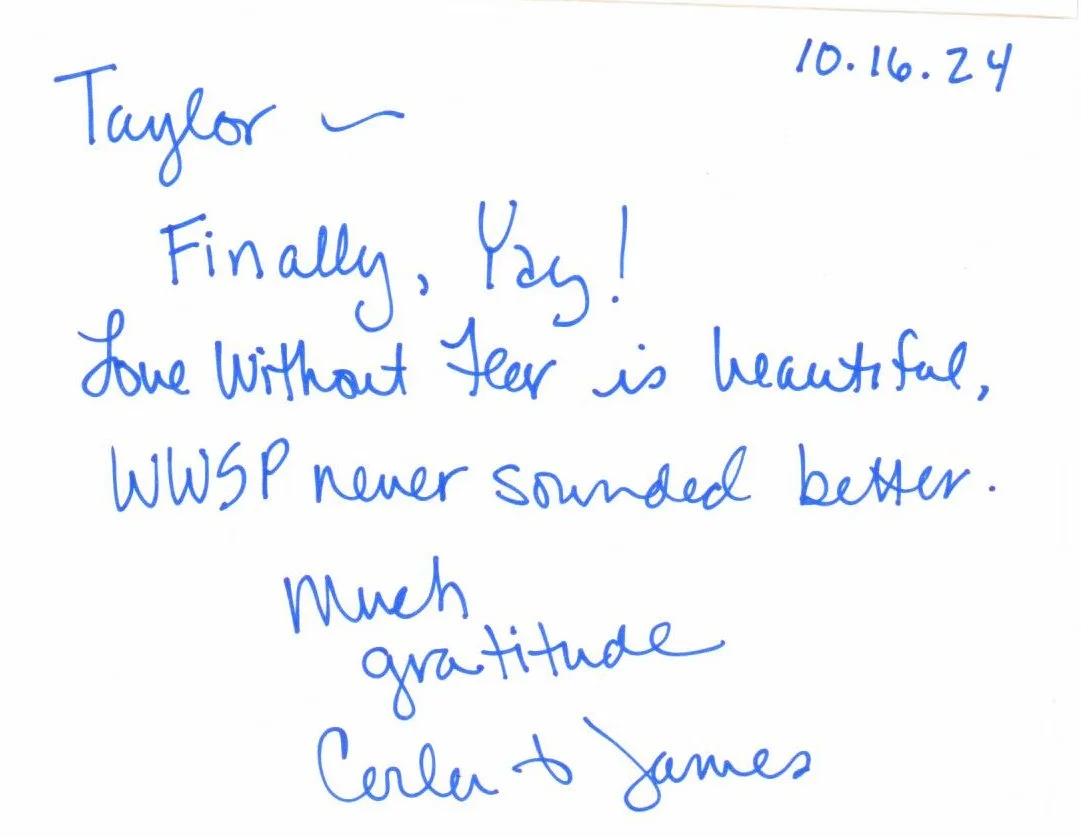 10.16.24
Taylor ~
Finally, Yay!
Love Without Fear is beautiful,
WWSP never sounded better.
Much
gratitude
Carla + James